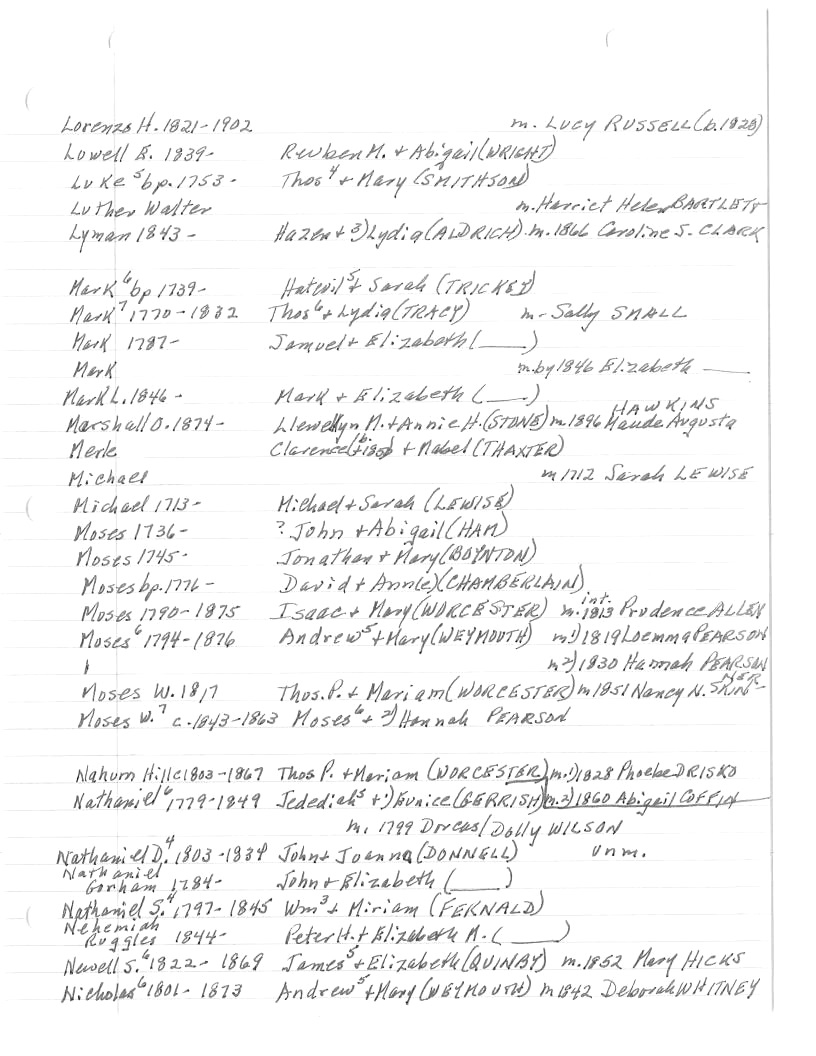 Lorenzo H. 1821-1902 m. LUCY RUSSELL (b.1828)
Lowell E. 1839- Reuben M. + Abigail (WRIGHT)
Luke 5 bp. 1753- Thos 4 + Mary (SMITHSON)
Luther Walter m. Harriet Helen BARTLETT
Lyman 1843- Hazen + 3) Lydia (ALDRICH) m. 1866 Caroline S. CLARK
Mark 6 bp 1739- Hatevil 5 + Sarah (TRICKEY)
Mark 7 1770-1832 Thos 6 + Lydia (TRACY) m- Sally SMALL
Mark 1787- Samuel + Elizabeth (___)
Mark m. by 1846 Elizabeth ___
Mark L. 1846- Mark + Elizabeth (___)
HAWKINS
Marshall O. 1874- Llewellyn M. + Annie H. (STONE) m. 1896 Maude Augusta
Merle Clarence + Mabel (THAXTER)
Michael m 1712 Sarah LEWISE
Michael 1713- Michael + Sarah (LEWISE)
Moses 1736- ? John + Abigail (HAM)
Moses 1745- Jonathan + Mary (BOYNTON)
Moses bp. 1776- David + Ann(e) (CHAMBERLAIN)
int.
Moses 1790-1875 Isaac + Mary (WORCESTER) m. 1813 Prudence ALLEN
Moses 6 1794-1876 Andrew 5 + Mary (WEYMOUTH) m 1) 1819 Loemma PEARSON
m 2) 1830 Hannah PEARSON
Moses W. 1817 Thos. P. + Mariam (WORCESTER) m 1851 Nancy N. SKIN-
NER
Moses W. 7 c. 1843-1863 Moses 6 + 2) Hannah PEARSON
Nahum Hill c1803-1867 Thos P. + Meriam (WORCESTER) m. 1) 1828 Phoebe DRISKO
Nathaniel 6 1779-1849 Jedediah 5 + 1) Eunice (GERRISH) m. 2) 1860 Abigail COFFIN
m. 1799 Dorcas/Dolly WILSON
Nathaniel D. 4 1803-1834 John + Joanna (DONNELL) unm.
Nathaniel
Gorham 1784- John + Elizabeth (___)
Nathaniel S. 4 1797-1845 Wm 3 + Miriam (FERNALD)
Nehemiah
Ruggles 1844- Peter H. + Elizabeth M. (___)
Newell S. 6 1822-1869 James 5 + Elizabeth (QUINBY) m. 1852 Mary HICKS
Nicholas 6 1801-1873 Andrew 5 + Mary (WEYMOUTH) m 1842 Deborah WHITNEY